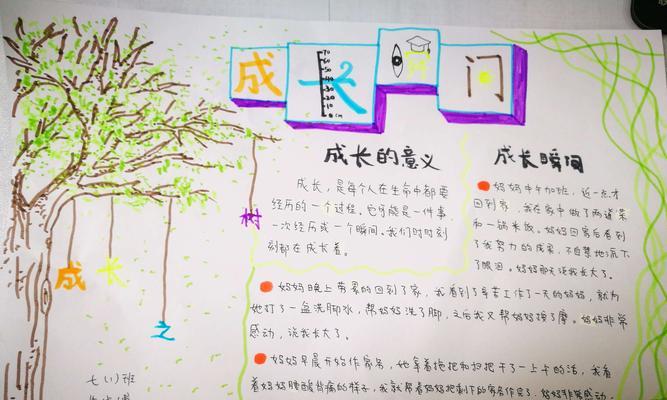 成长之门
70
60
50
40
30
20
10
0 cm
成长的意义
成长，是每个人在生命中都要
经历的一个过程。它可能是一件事
一次经历或一个瞬间。我们时时刻
刻都在成长着。
成长瞬间
妈妈中午加班，近一点才
回到家，我在家中做了两道菜
和一锅米饭。妈妈回家后看到
了我努力的成果，不自禁地流下
了眼泪。妈妈那天说我长大了。
妈妈晚上劳累的回到了家，我看到了辛苦工作了一天的妈妈，就为
她打了一盆洗脚水，帮妈妈洗了脚，之后我又帮妈妈按了摩。妈妈非常
感动，说我长大了。
妈妈早晨开始作家务，她拿着拖把和扫把干了一上午的活，我看
着妈妈腰酸背痛的样子，我就帮着妈妈把剩下的家务作完了，妈妈非常感动。
成
长
之
树
七(1)班